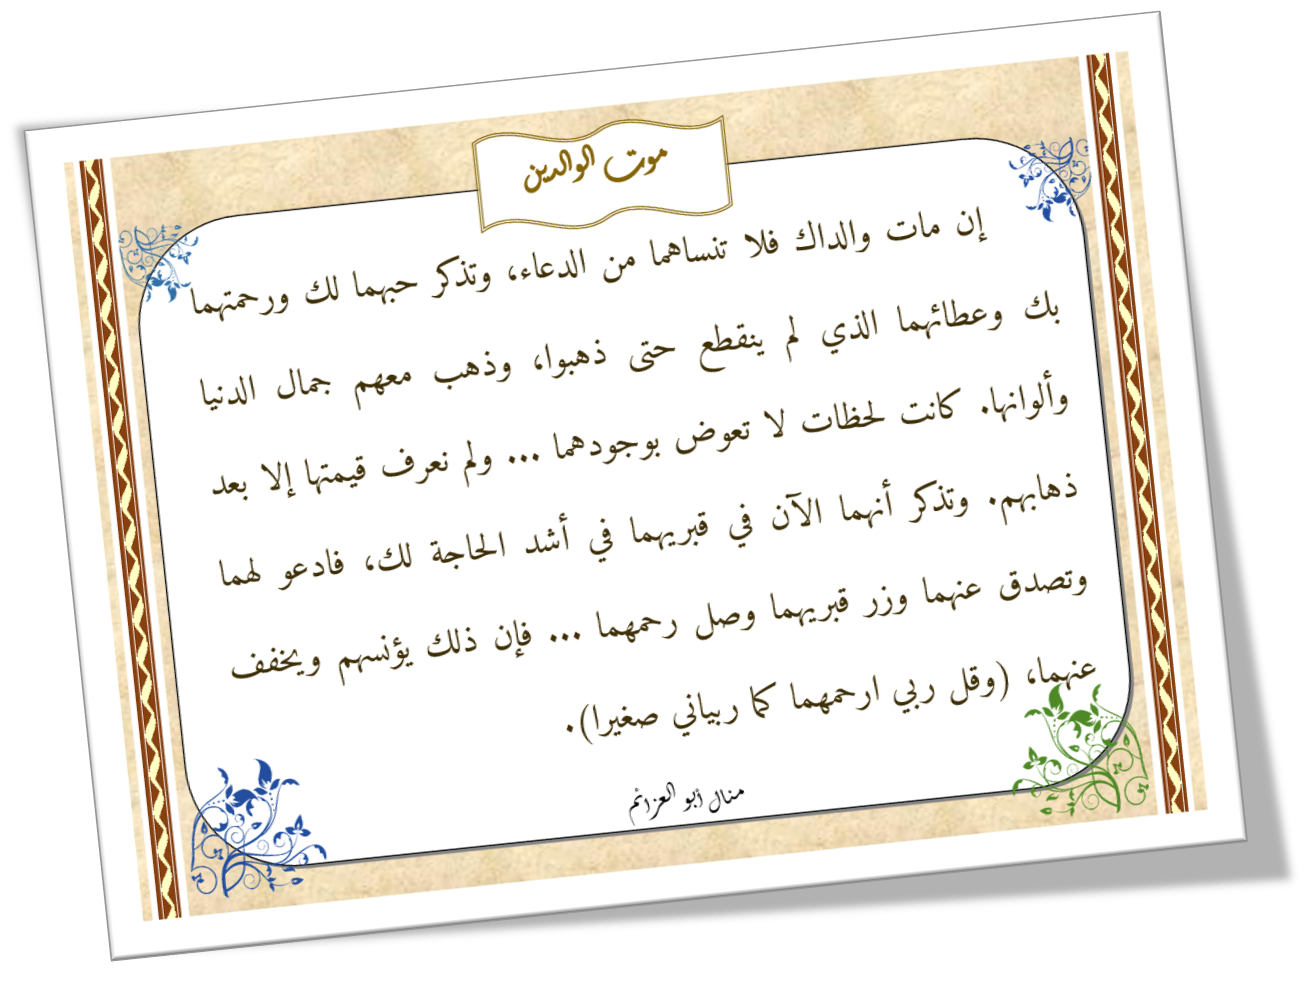 موت الوالدين
إن مات والداك فلا تنساهما من الدعاء، وتذكر حبهما لك ورحمتهما
بك وعطائهما الذي لم ينقطع حتى ذهبوا، وذهب معهم جمال الدنيا
وألوانها. كانت لحظات لا تعوض بوجودهما ... ولم نعرف قيمتها إلا بعد
ذهابهم. وتذكر أنهما الآن في قبريهما في أشد الحاجة لك، فادعو لهما
وتصدق عنهما وزر قبريهما وصل رحمهما ... فإن ذلك يؤنسهم ويخفف
عنهما، (وقل ربي ارحمهما كما ربياني صغيرا).
منال أبو العزائم